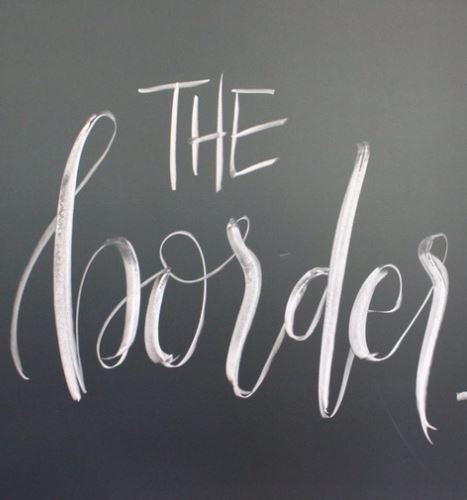 THE
border